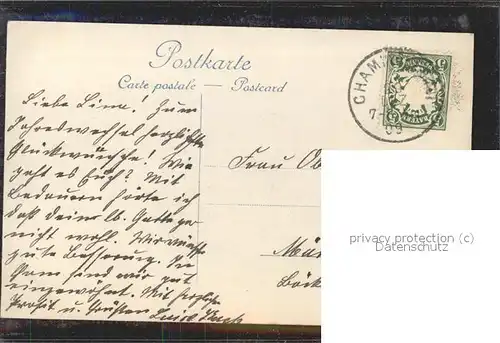 Postkarte
Carte postale — Postcard
CHAM
7-
09
5 5
BAYERN
5 5
Liebe Lina! Zum
Jahreswechsel herzlichste
Glückwünsche! Wie
geht es Euch? Mit
Bedauern hörte ich
daß dein lb. Gatte gar
nicht wohl. Wir wünschen
gute Besserung. In
Cham sind wir gut
eingewöhnt. Mit herzlichen
Prosit u. Grüßen
Frau Ob
Mün
Böck
privacy protection (c)
Datenschutz